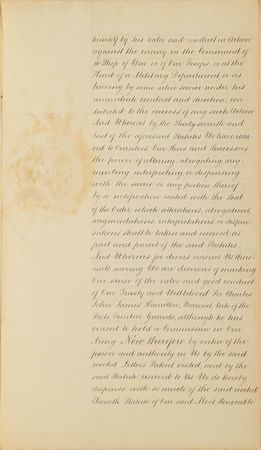 himself by his valor and conduct in Action
against the enemy in the Command of
a Ship of War or of Our Troops, or at the
Head of a Military Department or as
having by some active service under his
immediate conduct and direction, con-
tributed to the success of any such Action
And Whereas by the Thirty seventh and
last of the aforesaid Statutes We have reserv-
ed to Ourselves, Our Heirs and Successors
the power of altering, abrogating, aug-
menting, interpreting, or dispensing
with the same or any portion thereof
by a notification sealed with the Seal
of the Order, which alterations, abrogations
augmentations, interpretations, or dispen-
sations shall be taken and received as
part and parcel of the said Statutes:
And Whereas for divers reasons Us there-
unto moving We are desirous of marking
Our sense of the value and good conduct
of Our Trusty and Wellbeloved Sir Charles
John James Hamilton, Baronet, late of the
Scots Fusilier Guards, although he has
ceased to hold a Commission in Our
Army Now therefore by virtue of the
power and authority in Us by the said
recited Letters Patent vested, and by the
said Statute reserved to Us We do hereby
dispense with so much of the said recited
Statute of Our said Most Honorable